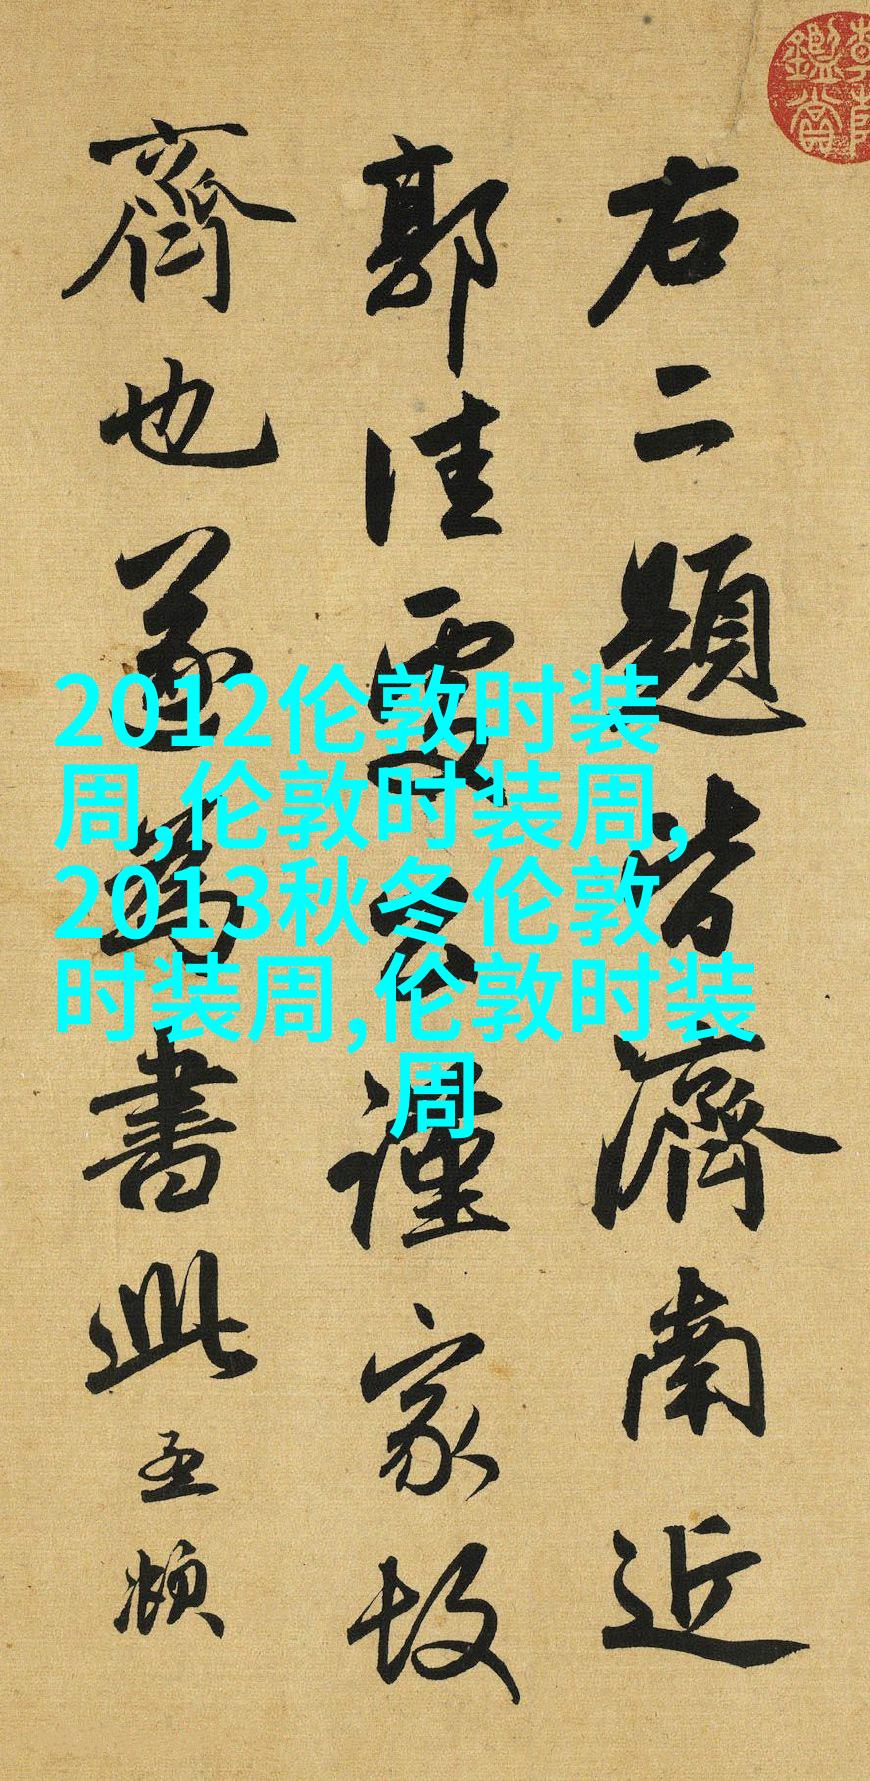 右二題皆濟南近
郭佳處公謹家故
齊也遂為書此孟頫
2012伦敦时装
周,伦敦时装周,
2013秋冬伦敦
时装周,伦敦时装
周